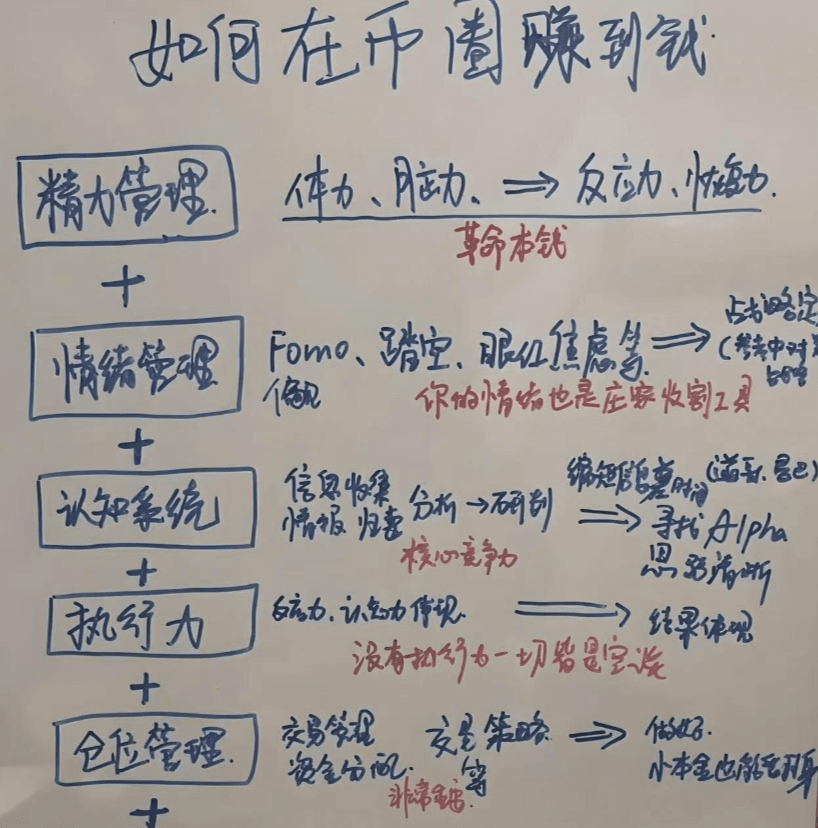 如何在币圈赚到钱
精力管理. 体力、脑力、⇒ 反应力、恢复力.
革命本钱
+
情绪管理 Fomo、踏空、眼红焦虑等. ⇒
偏见
你的情绪也是庄家收割工具
+
认知系统 信息收集 分析→研判 ⇒ 缩短信息差时间
情报 归类 寻找Alpha
核心竞争力 思路清晰
+
执行力 反应力、认知力体现. ⇒ 结果体现
没有执行力一切皆是空谈
+
仓位管理. 交易管理 交易策略 ⇒ 做好.
资金分配. 等 小本金也能翻身
非常重要.
+